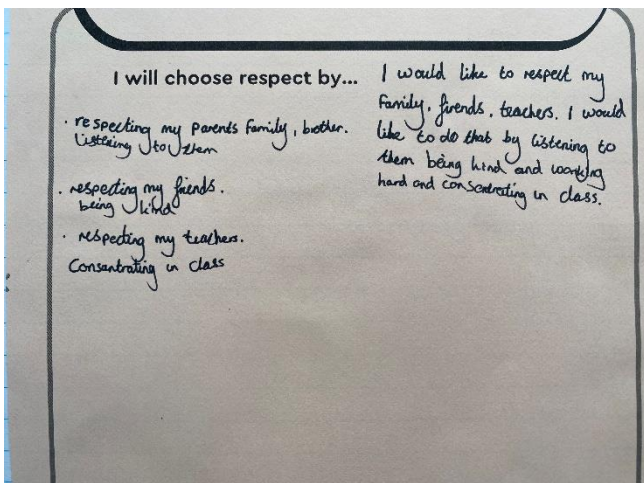 I will choose respect by...
. respecting my parents family, brother.
listening to them
. respecting my friends.
being kind
. respecting my teachers.
Consantrating in class
I would like to respect my
family, firends, teachers. I would
like to do that by listening to
them being kind and working
hard and consentreating in class.